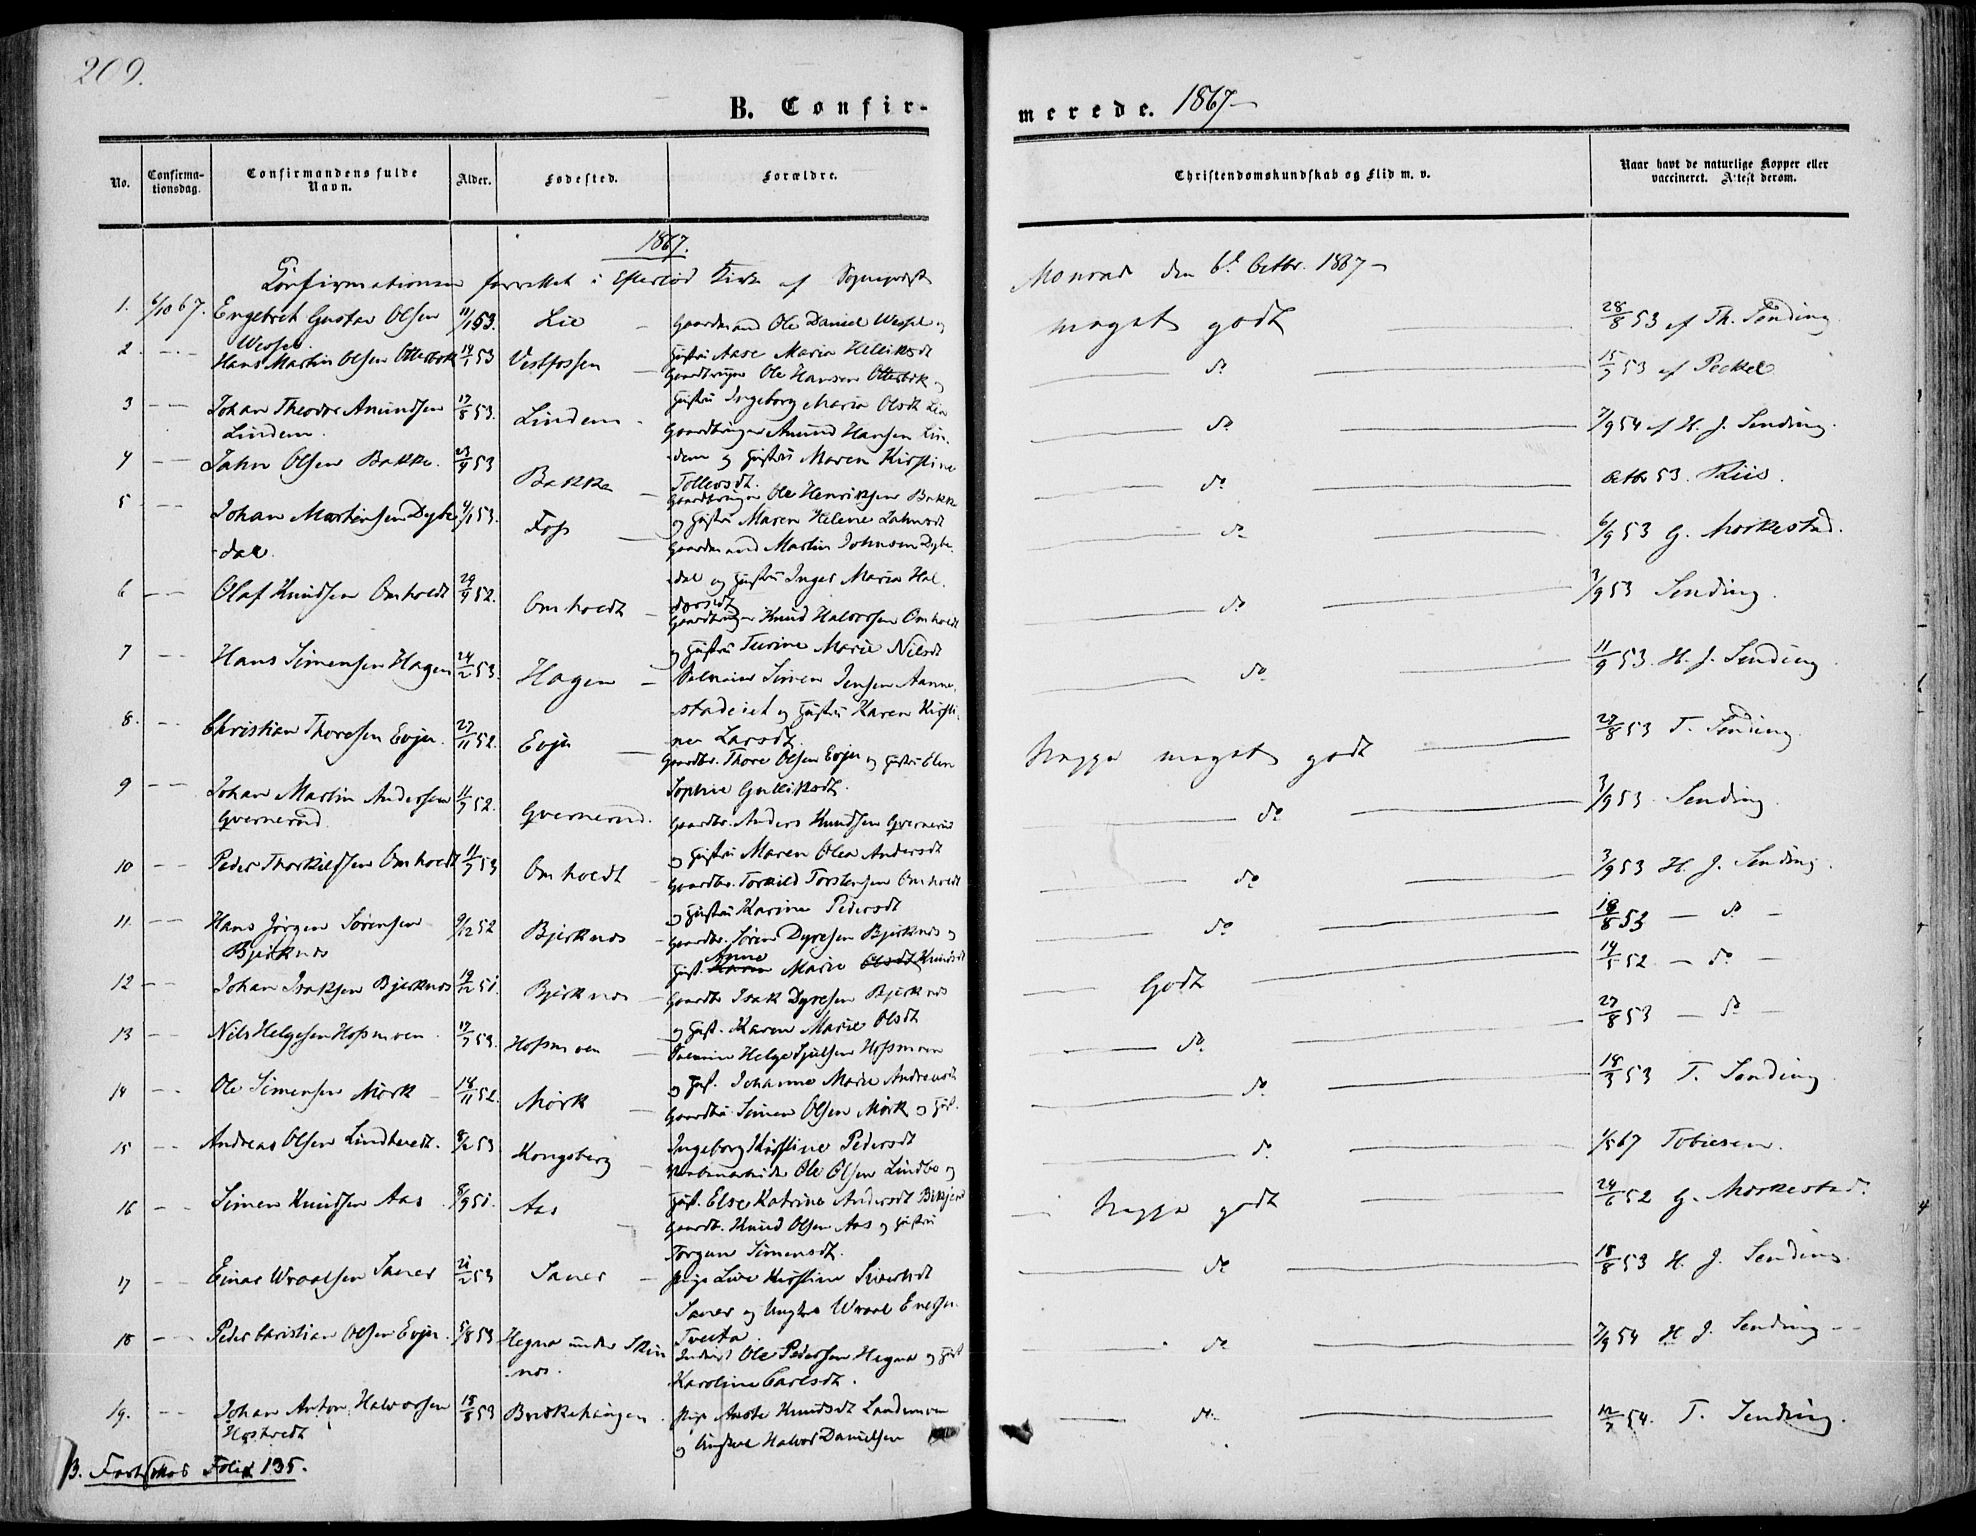 209.
B. Confir-
merede. 1867
No.
Confirma-
tionsdag.
Confirmandens fulde
Navn.
Alder.
Fødested.
Forældre.
Christendomskundskab og Flid m. v.
Naar havt de naturlige Kopper eller
vaccineret. Attest derom.
1867.
Confirmationen forrettet i Eftelød Kirke af Sognepræst
Monrad den 6te Octbr. 1867
1. 6/10 67. Engebret Gustav Olsen 11/1 53. Lie Gaardmand Ole Daniel Wessel og
meget godt 28/8 53 af Th. Sending
Wessel.
Hustru Aase Maria Helliksdt
2. Hans Martin Olsen Otterbek 14/1 53 Vestfossen Gaardbruger Ole Hansen Otterbek og
do 15/9 53 af Peckel
Hustru Ingeborg Maria Olsdt
3 Johan Theodor Amundsen 17/8 53. Lindem Gaardbruger Amund Hansen Lin-
do 7/9 54 af H. J. Sending.
Lindem.
dem og Hustru Maren Kirstine
Tollevsdt.
4 Jahn Olsen Bakke. 23/9 53 Bakke Gaardbruger Ole Henriksen Bakke
do Octbr 53. Riis.
og Hustru Maren Helene Jahnsdt
5 Johan Martinsen Dybe 4/1 53. Foss Gaardmand Martin Johnsen Dybe-
do 6/9 53 G. Morkestad.
-dal.
-dal og Hustru Inger Maria Hal-
vorsdt
6 Olaf Knudsen Omholdt 29/9 52. Omholdt Gaardbruger Knud Halvorsen Omholdt
do 3/9 53 Sending.
og Hustru Turine Marie Nilsdt
7 Hans Simensen Hagen 24/2 53. Hagen Pladsmand Simen Jensen Aanne-
do 11/9 53. H. J. Sending
stadeiet og Hustru Karen Kirsti-
ne Larsdt.
8. Christian Thoresen Evju. 27/11 52. Evju Gaardbr. Thore Olsen Evju og Hustru Elen
Neppe meget godt 27/8 53 T. Sending.
Sophie Gulliksdt.
9 Johan Martin Andersen 11/9 52. Gvernerud. Gaardbr. Anders Knudsen Gvernerud
do 3/9 53. Sending.
Gvernerud
og Hustru Maren Olea Andersdt
10 Peder Thorkildsen Omholdt 11/7 53 Omholdt Gaardbr. Torkild Torstensen Omholdt
do 3/9 53 H. J. Sending.
og Hustru Karine Pedersdt
11. Hans Jørgen Sørensen 9/12 52 Bjerknes Gaardbr. Søren Dyresen Bjerknes og
do 18/8 53 — do —
Bjerknes
Hust. Anne Marie Knudsdt
12 Johan Isaksen Bjerknes 19/12 51. Bjerknes Gaardbr Isak Dyresen Bjerknes
Godt 14/5 52 — do —
og Hust. Karen Marie Olsdt
13 Nils Helgesen Hofsmoen 17/7 53. Hofsmoen Helge Hofsmoen
do 27/8 53 — do —
og Hust. Johanne Marie Andreasdt
14 Ole Simensen Mørk 18/11 52. Mørk Gaardbr. Simen Olsen Mørk og Hust.
do 18/3 53 T. Sending
Ingeborg Kirstine Pedersdt
15 Andreas Olsen Lindtvedt. 8/2 53 Kongsberg Ole Olsen Lindbo og
do 1/5 67 Tobiesen.
Hust. Else Katrine Andersdt
16 Simen Knudsen Aas 8/9 51. Aas Gaardb. Knud Olsen Aas og Hustru
Neppe godt 24/6 52 G. Morkestad.
Jorgun Simensdt.
17 Einar Wraalsen Saner 21/2 53 Saner Pige Live Kirstine Siversdt
do 18/8 53 H. J. Sending.
Saner og Ungkar Wraal Enersen
Tveita.
18 Peder Christian Olsen Evju. 5/8 53 Hegna under Skin- Inderst Ole Pedersen Hegna og Hust
do 7/9 54 H. J. Sending
nes.
Karoline Carlsdt.
19. Johan Anton Halvorsen 15/8 53 Brekkehaugen. Pige Anete Knudsdt Landemoen
do 12/7 54. T. Sending.
Hostvedt
og Ungkar Halvor Danielsen
B. Fortsættes Folio 135.